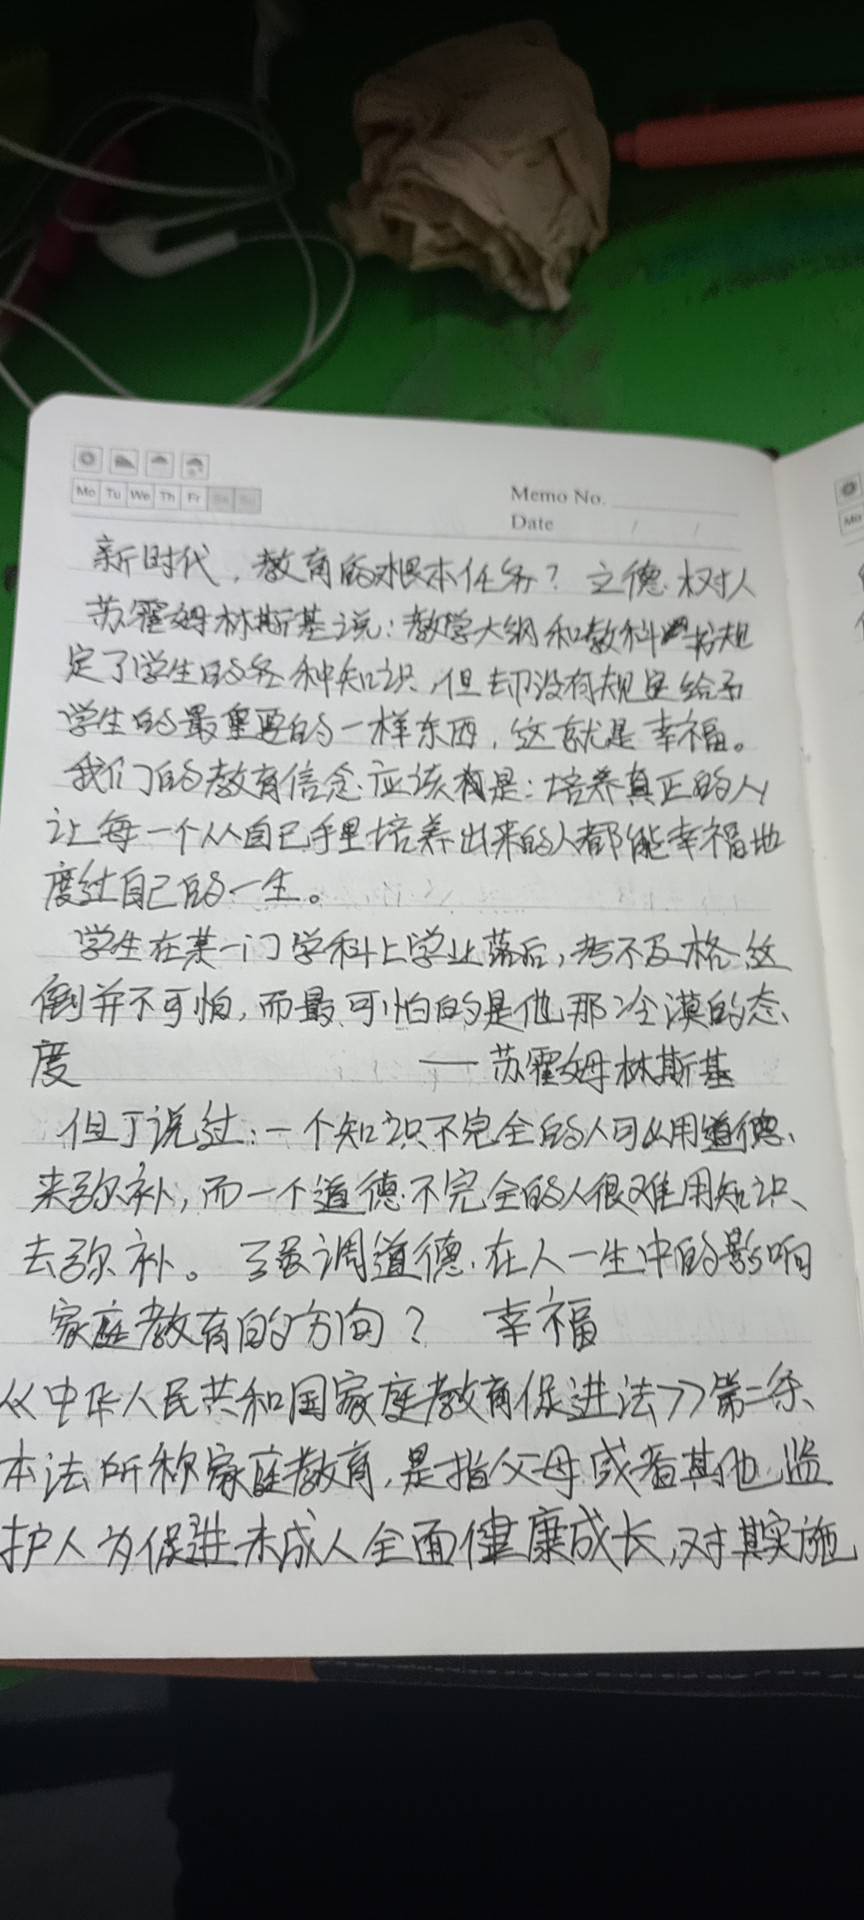 Mo Tu We Th Fr Sa Su
Memo No.
Date / /
新时代，教育的根本任务？立德树人
苏霍姆林斯基说：教学大纲和教科书规
定了学生的各种知识，但却没有规定给予
学生的最重要的一样东西，这就是幸福。
我们的教育信念应该是：培养真正的人
让每一个从自己手里培养出来的人都能幸福地
度过自己的一生。
学生在某一门学科上学业落后，考不及格这
倒并不可怕，而最可怕的是他那冷漠的态
度 ——苏霍姆林斯基
但丁说过：一个知识不完全的人可以用道德
来弥补，而一个道德不完全的人很难用知识
去弥补。强调道德在人一生中的影响
家庭教育的方向？ 幸福
《中华人民共和国家庭教育促进法》第二条
本法所称家庭教育，是指父母或者其他监
护人为促进未成人全面健康成长，对其实施